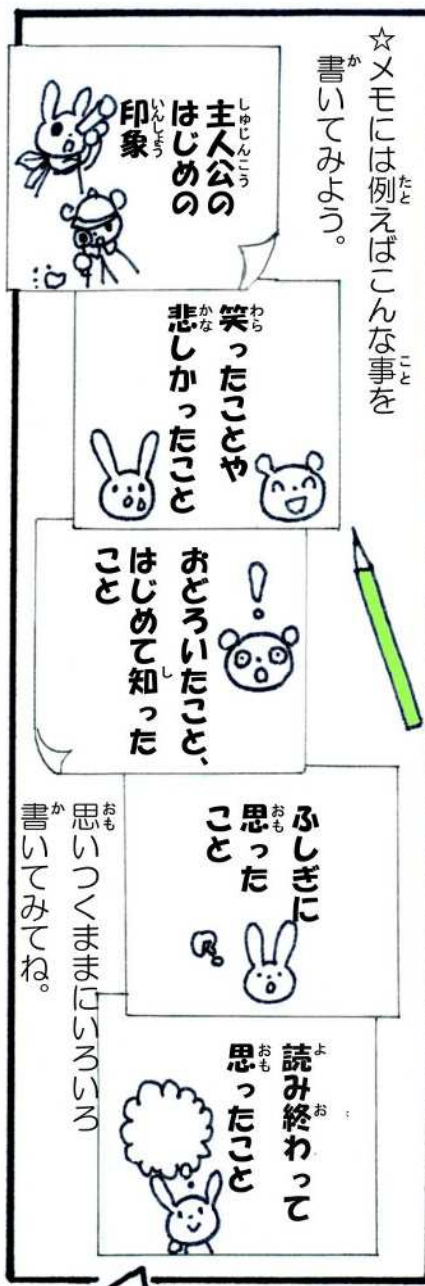 ☆メモには例えばこんな事を
書いてみよう。
主人公の
はじめの
印象
笑ったことや
悲しかったこと
おどろいたこと、
はじめて知った
こと
ふしぎに
思った
こと
読み終わって
思ったこと
思いつくままにいろいろ
書いてみてね。